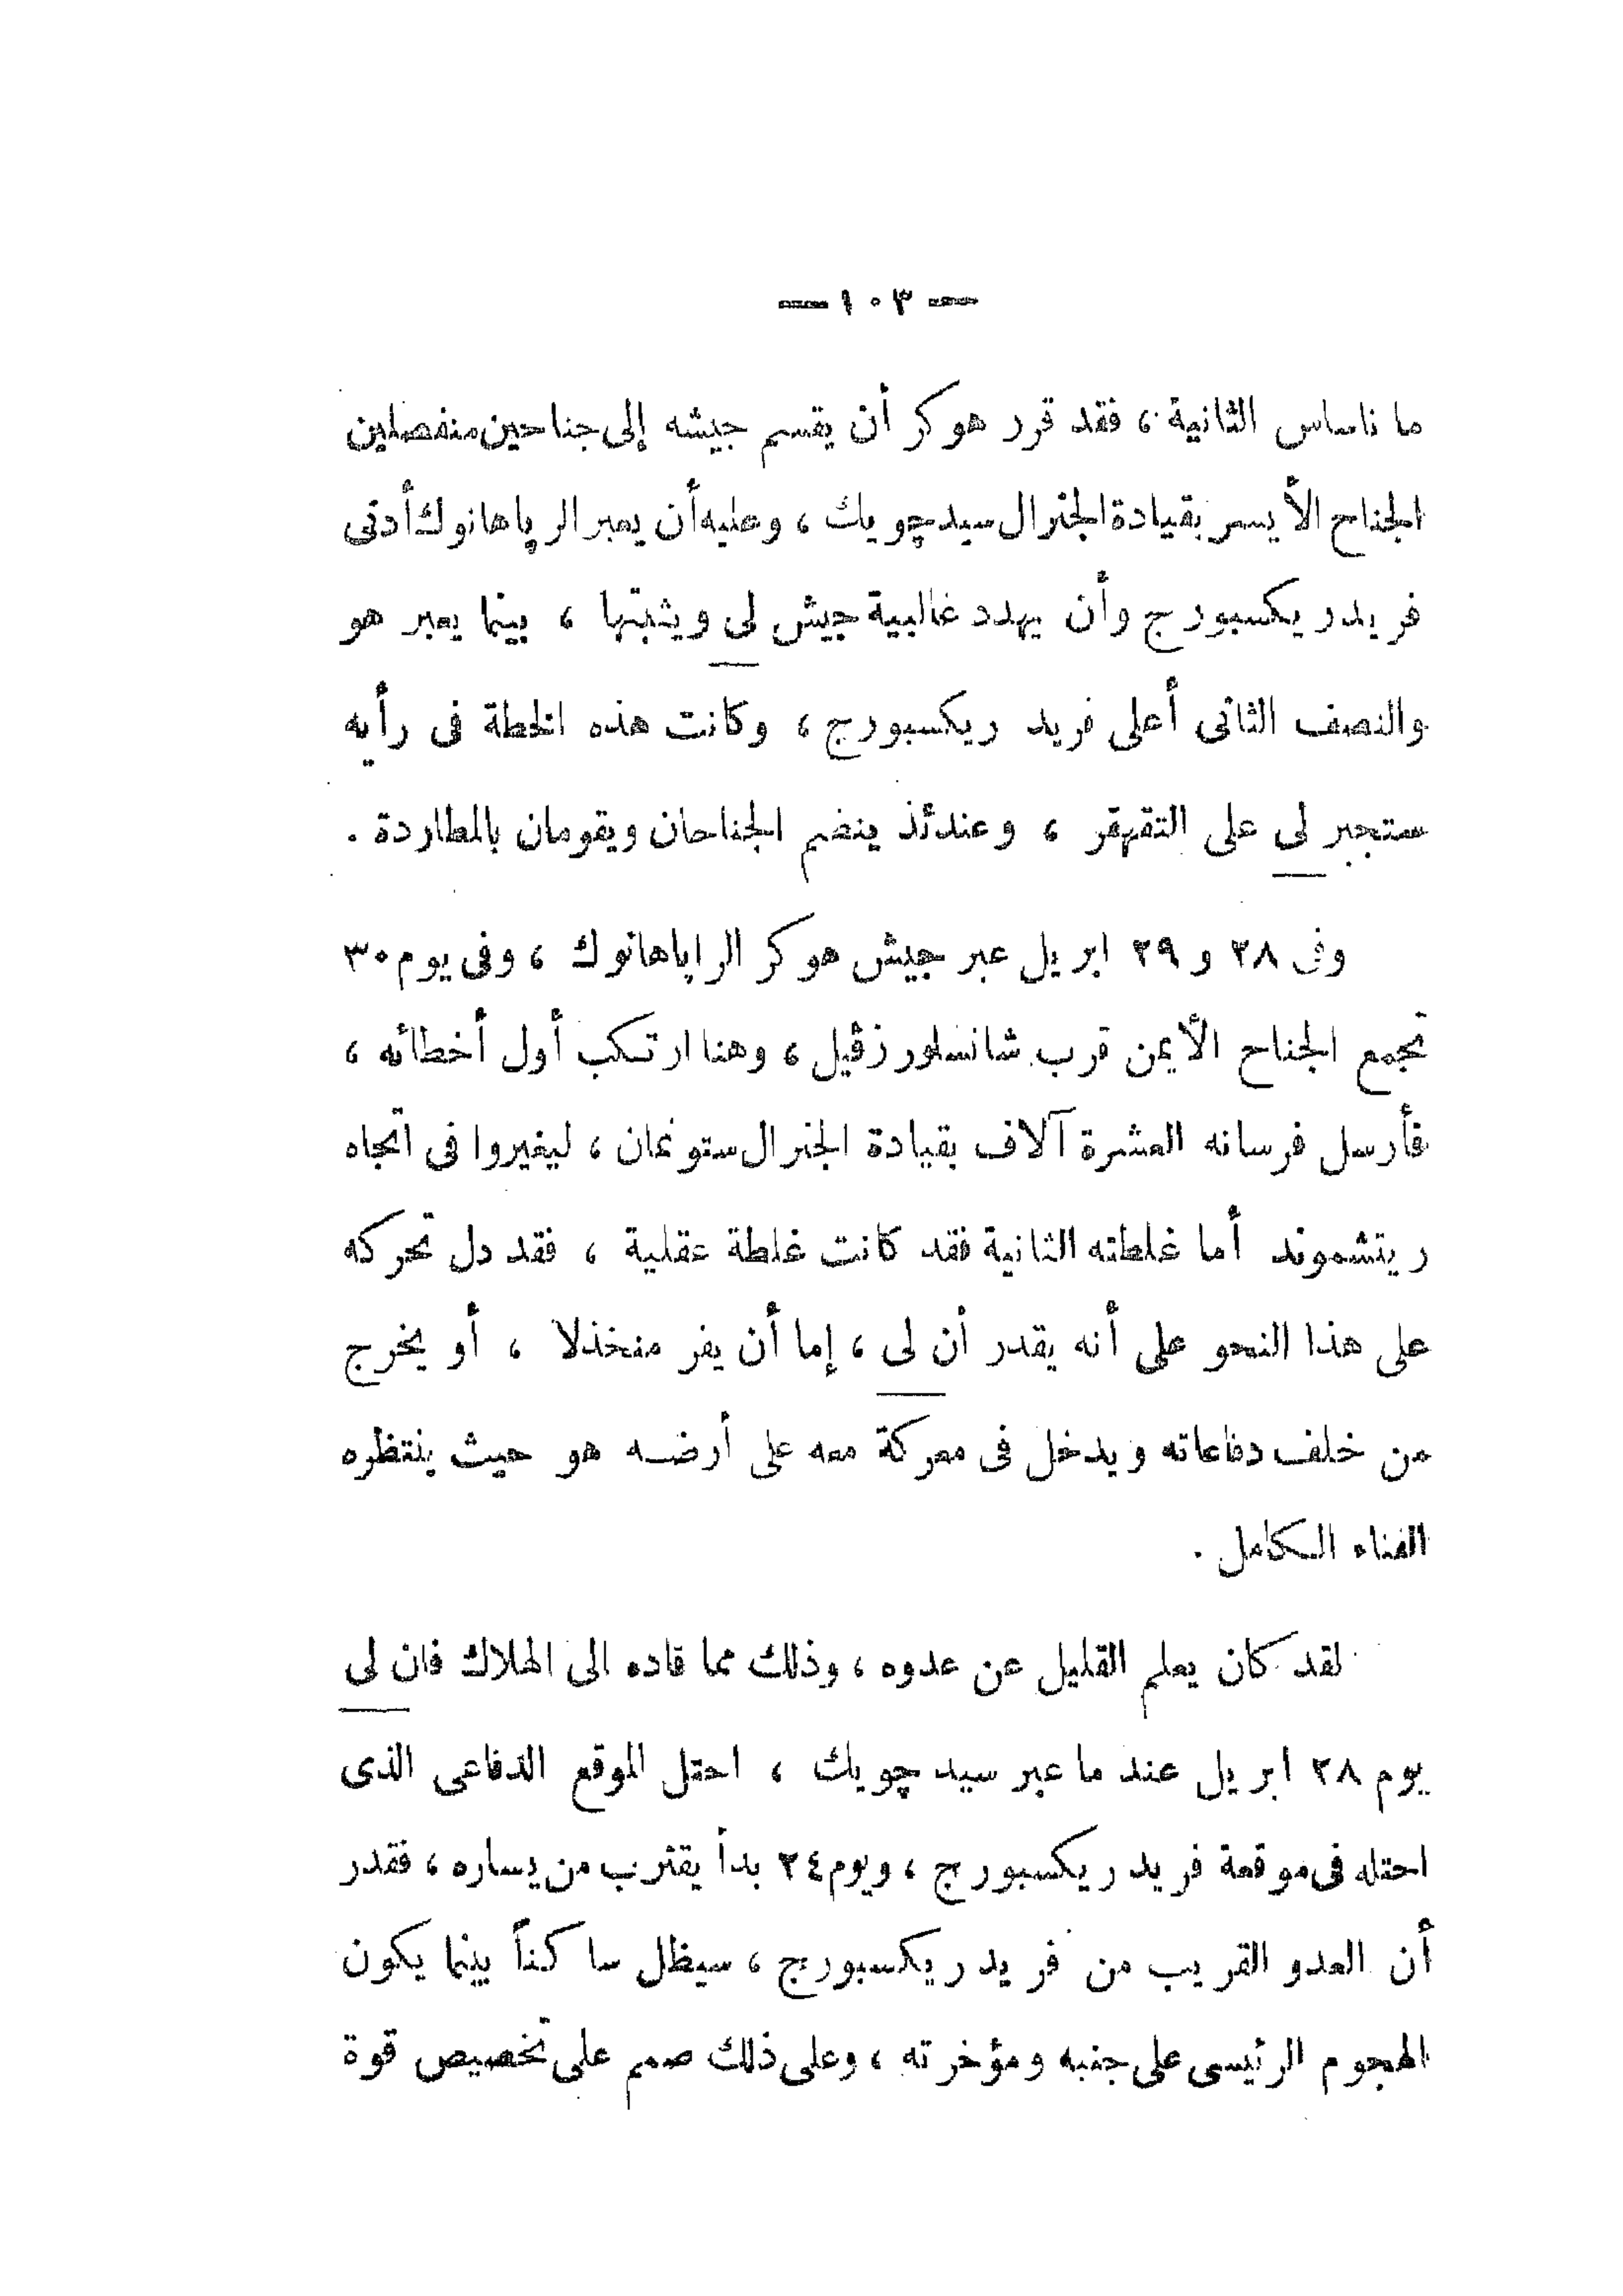 — ١٠٣ —
ما ناساس الثانية ، فقد قرر هوكر أن يقسم جيشه إلى جناحين منفصلين
الجناح الأيسر بقيادة الجنرال سيدچويك ، وعليه أن يعبر الرپاهانوك أدنى
فريدريكسبورج وأن يهدد غالبية جيش لى ويثبتها ، بينما يعبر هو
والنصف الثانى أعلى فريد ريكسبورج ، وكانت هذه الخطة فى رأيه
ستجبر لى على التقهقر ، وعندئذ ينضم الجناحان ويقومان بالمطاردة .
وفى ٢٨ و ٢٩ ابريل عبر جيش هوكر الراپاهانوك ، وفى يوم ٣٠
تجمع الجناح الأيمن قرب شانسلورزڤيل ، وهنا ارتكب أول أخطائه ،
فأرسل فرسانه العشرة آلاف بقيادة الجنرال ستونمان ، ليغيروا فى اتجاه
ريتشموند أما غلطته الثانية فقد كانت غلطة عقلية ، فقد دل تحركه
على هذا النحو على أنه يقدر أن لى ، إما أن يفر منخذلا ، أو يخرج
من خلف دفاعاته ويدخل فى معركة معه على أرضه هو حيث ينتظره
الفناء الكامل .
لقد كان يعلم القليل عن عدوه ، وذلك مما قاده الى الهلاك فان لى
يوم ٢٨ ابريل عند ما عبر سيد چويك ، احتل الموقع الدفاعى الذى
احتله فى موقعة فريدريكسبورج ، ويوم ٢٤ بدأ يقترب من يساره ، فقدر
أن العدو القريب من فريدريكسبورج ، سيظل ساكناً بينما يكون
الهجوم الرئيسى على جنبه ومؤخرته ، وعلى ذلك صمم على تخصيص قوة